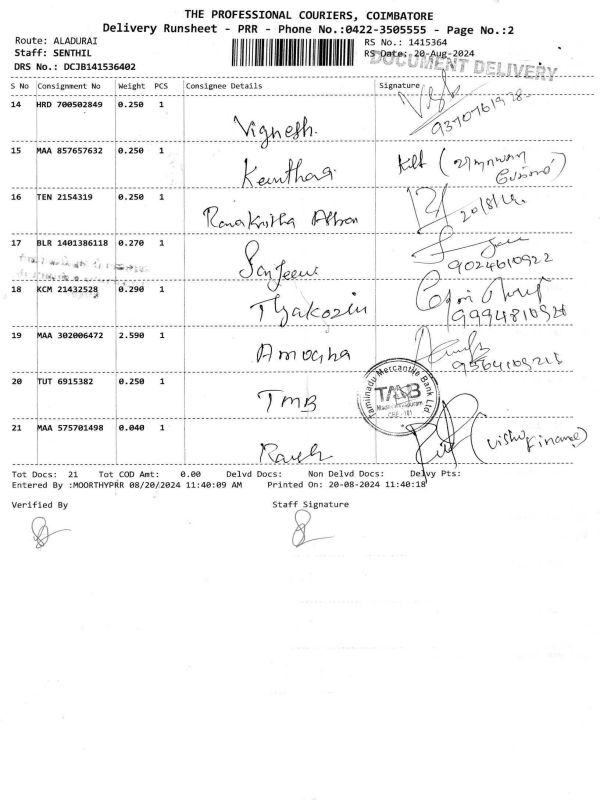 THE PROFESSIONAL COURIERS, COIMBATORE
Delivery Runsheet - PRR - Phone No.:0422-3505555 - Page No.:2
Route: ALADURAI RS No.: 1415364
Staff: SENTHIL RS Date: 20-Aug-2024
DOCUMENT DELIVERY
DRS No.: DCJB141536402
S No Consignment No Weight PCS Consignee Details Signature
14 HRD 700502849 0.250 1 Vignesh.
15 MAA 857657632 0.250 1
16 TEN 2154319 0.250 1 20/8/24.
17 BLR 1401386118 0.270 1 Sanjeevi 9024610922
18 KCM 21432528 0.290 1
19 MAA 302006472 2.590 1 Amogha
20 TUT 6915382 0.250 1 TMB
Tamilnadu Mercantile Bank Ltd.
TMB
CBE - 101
21 MAA 575701498 0.040 1 (Vishu Finance)
Tot Docs: 21 Tot COD Amt: 0.00 Delvd Docs: Non Delvd Docs: Delvy Pts:
Entered By :MOORTHYPRR 08/20/2024 11:40:09 AM Printed On: 20-08-2024 11:40:18
Verified By Staff Signature